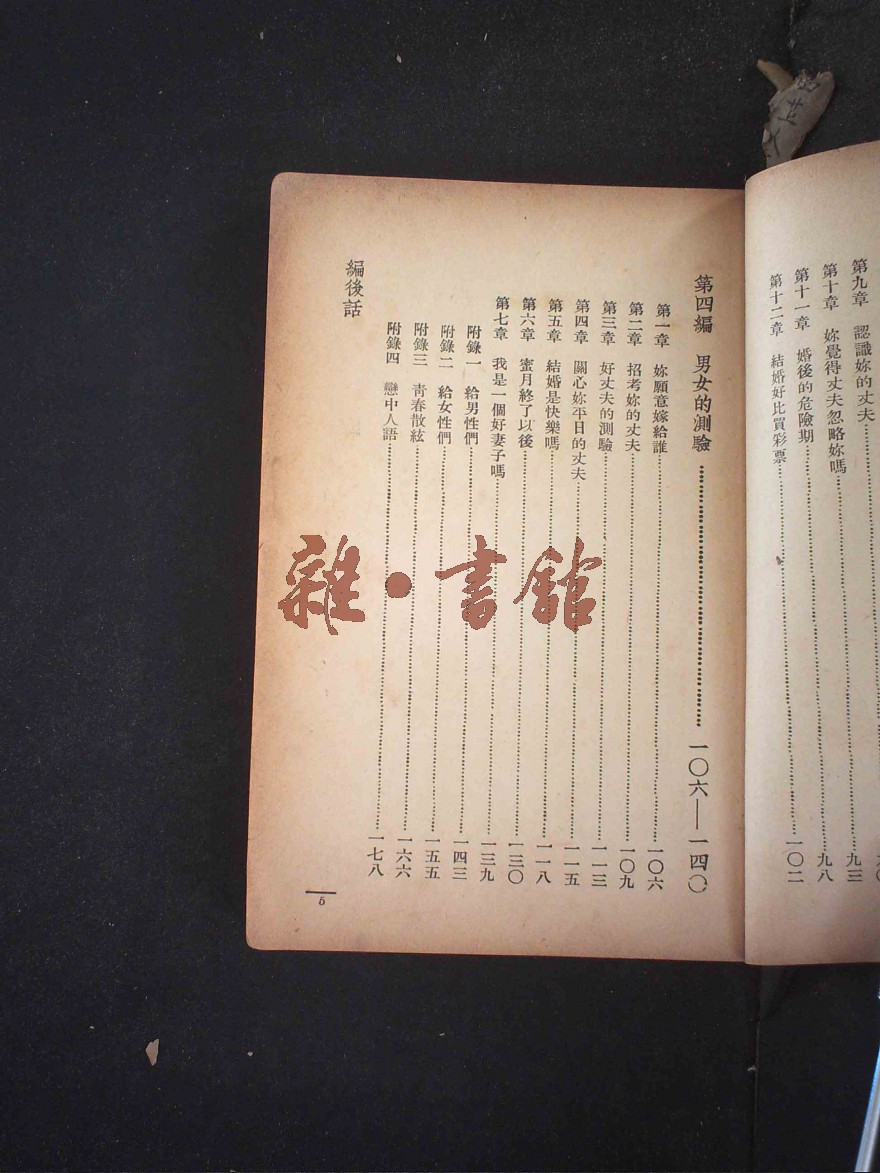 第九章 認識妳的丈夫
第十章 妳覺得丈夫忽略妳嗎……九三
第十一章 婚後的危險期……九八
第十二章 結婚好比買彩票……一〇二
第四編 男女的測驗……一〇六—一四〇
第一章 妳願意嫁給誰……一〇六
第二章 招考妳的丈夫……一〇九
第三章 好丈夫的測驗……一一三
第四章 關心妳平日的丈夫……一一五
第五章 結婚是快樂嗎……一一八
第六章 蜜月終了以後……一三〇
第七章 我是一個好妻子嗎……一三九
附錄一 給男性們……一四三
附錄二 給女性們……一五五
附錄三 靑春散絃……一六六
附錄四 戀中人語……一七八
編後話
5
雜·書館